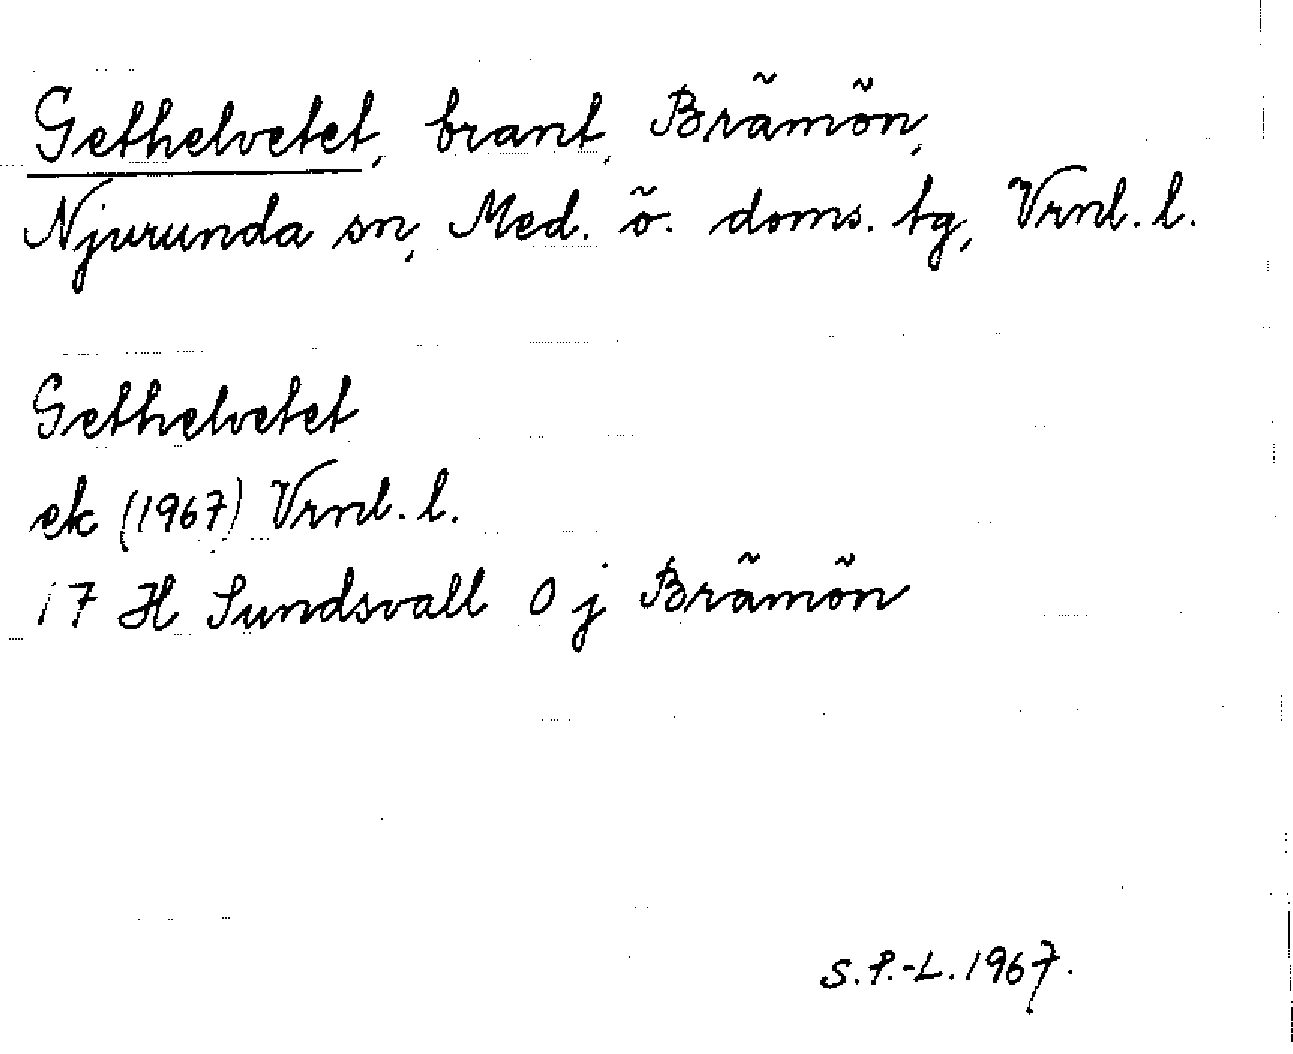 Gethelvetet, brant, Brämön,
Njurunda sn, Med. ö. doms. tg, Vrnl. l.
Gethelvetet
ek (1967) Vrnl. l.
17 H Sundsvall 0 j Brämön
S.P.-L. 1967.